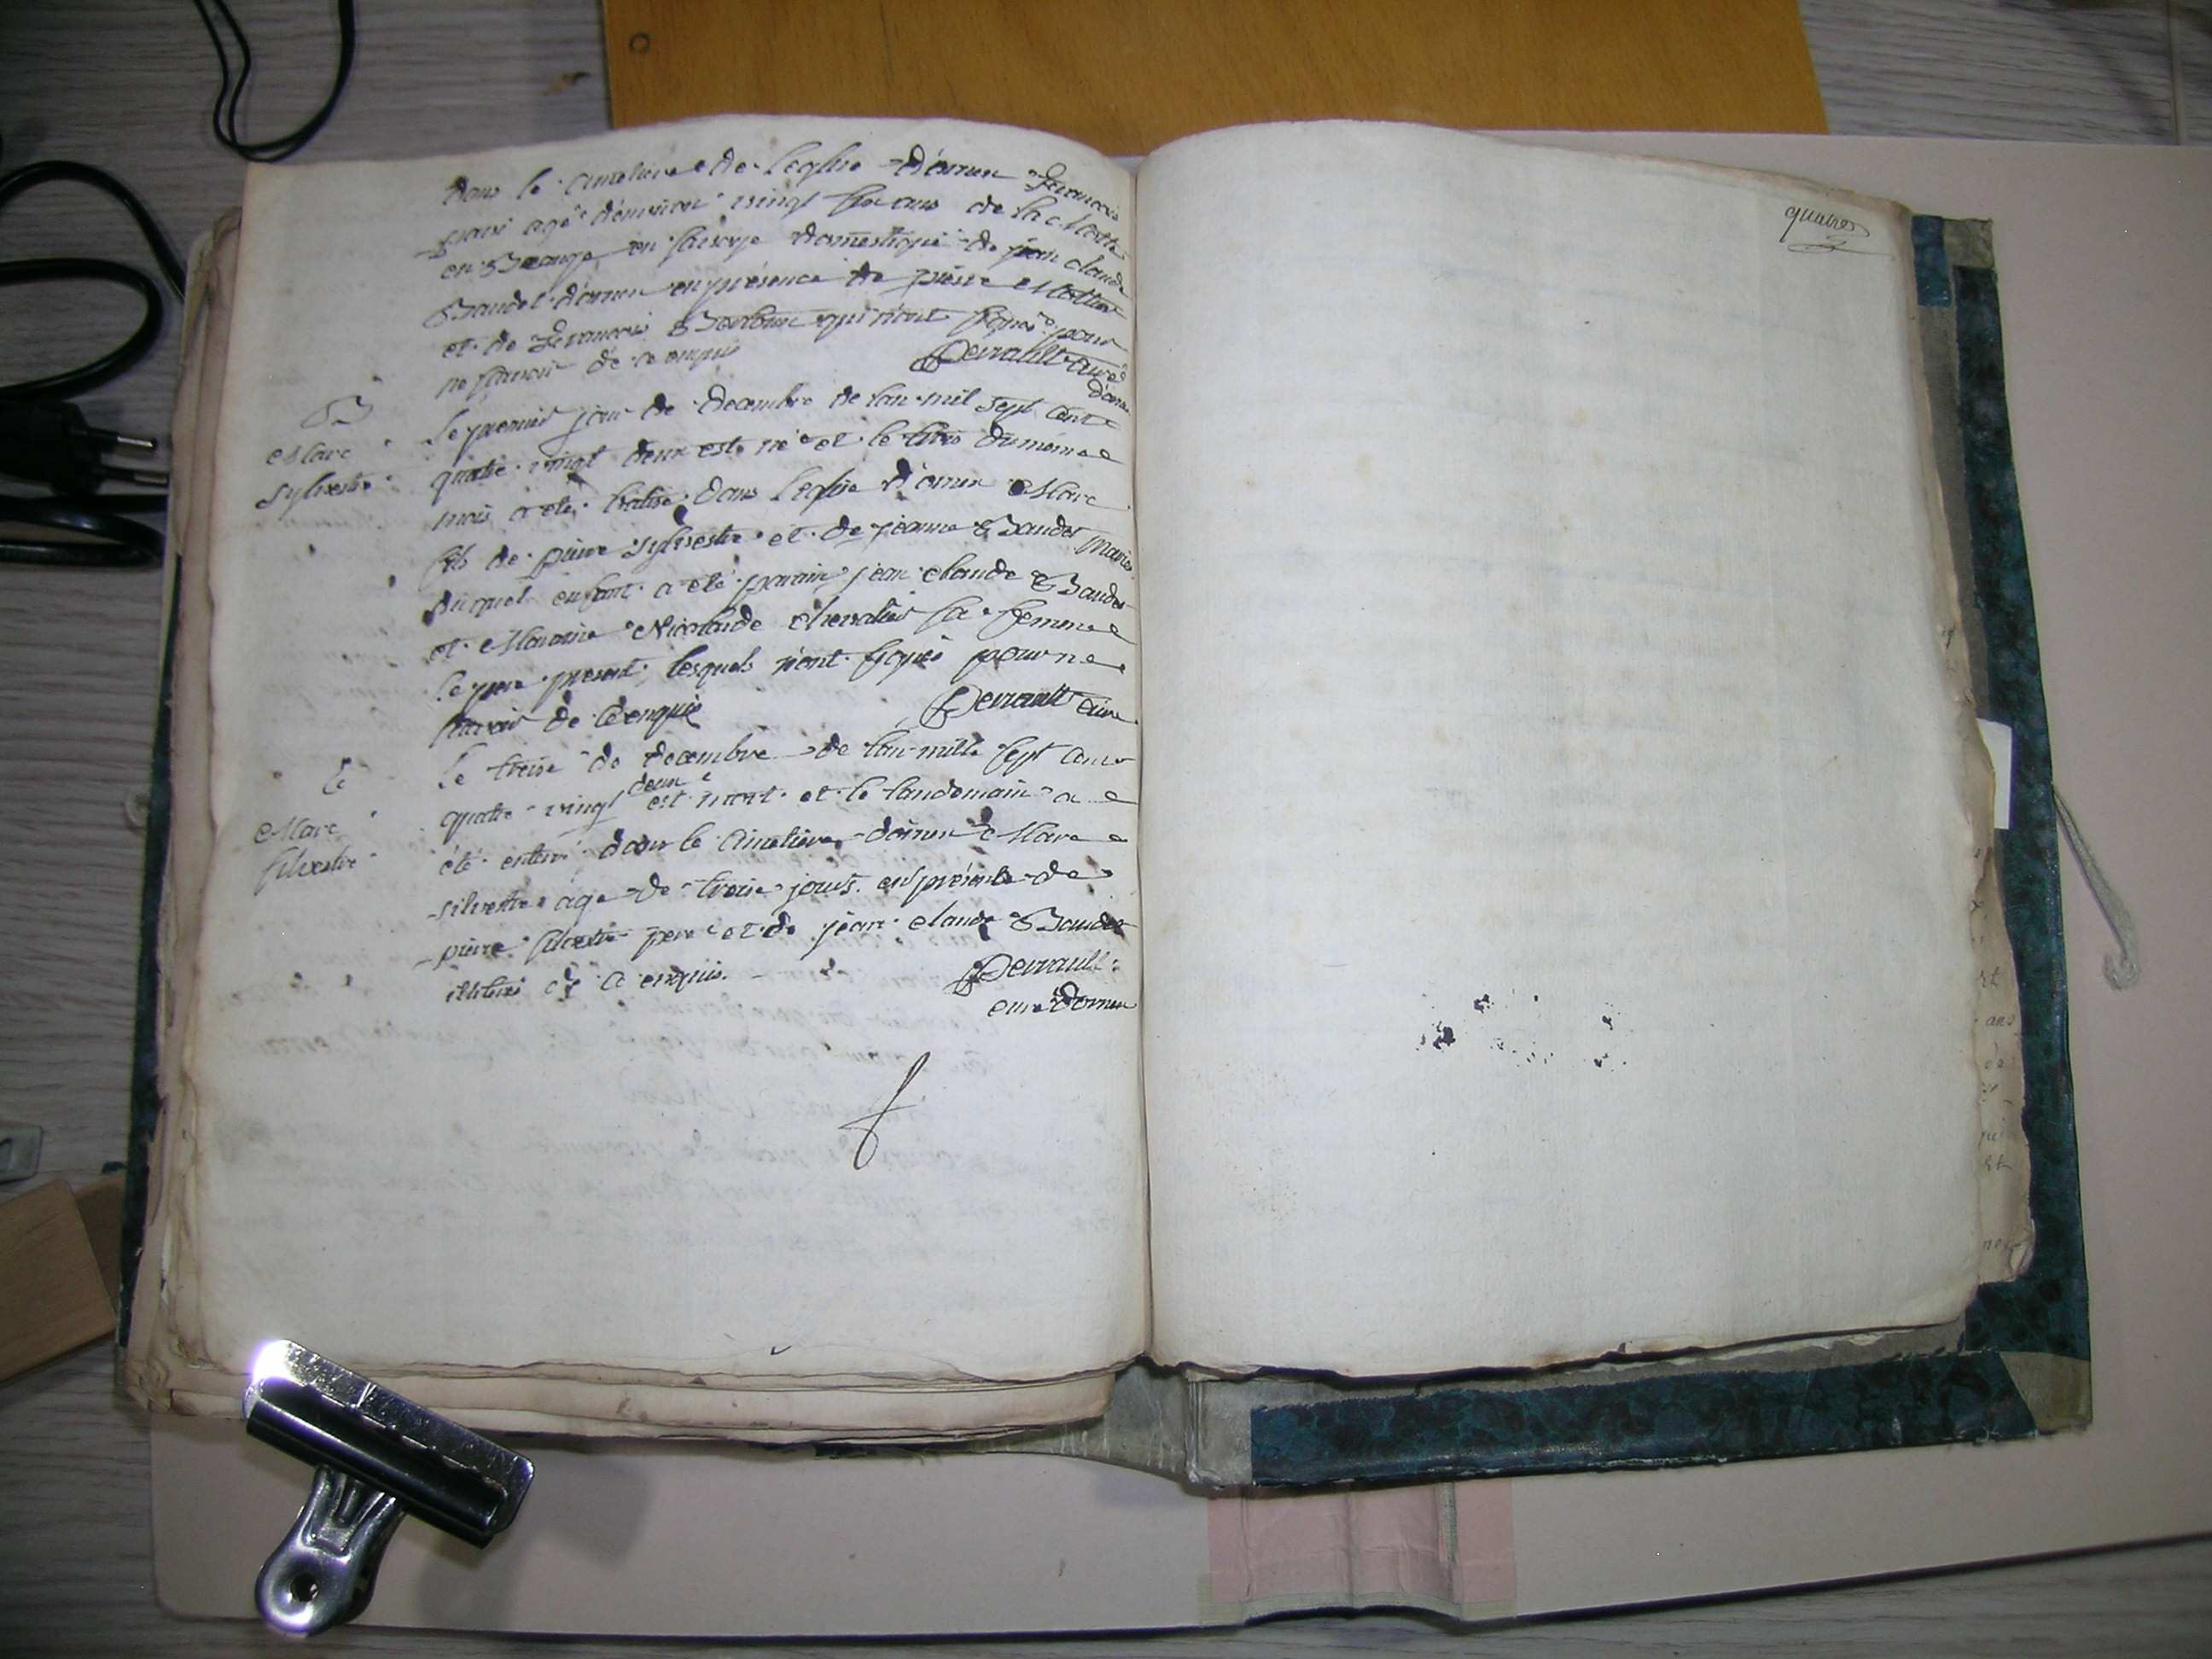 dans le cimetiere de leglise d'ornen Francois
agé d'environ vingt ans de la Motte
en domestique de jean claude
Baudet d'ornen en présence de pierre
et de Francois qui n'ont signé pour
ne scavoir de ce enquis Perrault curé
d'ornen
B
Marc
Sylvestre
Le premier jour de decembre de lan mil sept cent
quatre vingt deux est né et le trois du même
mois a été batisé dans leglise d'ornen Marc
fils de pierre Sylvestre et de jeanne Baudet mariés
duquel enfant a été parain jean claude Baudet
et Maraine Nicolarde chevalier sa femme
le pere present, lesquels n'ont signé pour ne
scavoir de ce enquis Perrault curé
Marc
silvestre
Le troise de decembre de lan mille sept cent
quatre vingt deux est mort et le landemain a
été enterré dans le cimetiere d'ornen Marc
silvestre age de troise jours en présence de
pierre silvestre pere et de jean claude Baudet
illitérés de ce enquis. Perrault
curé d'ornen